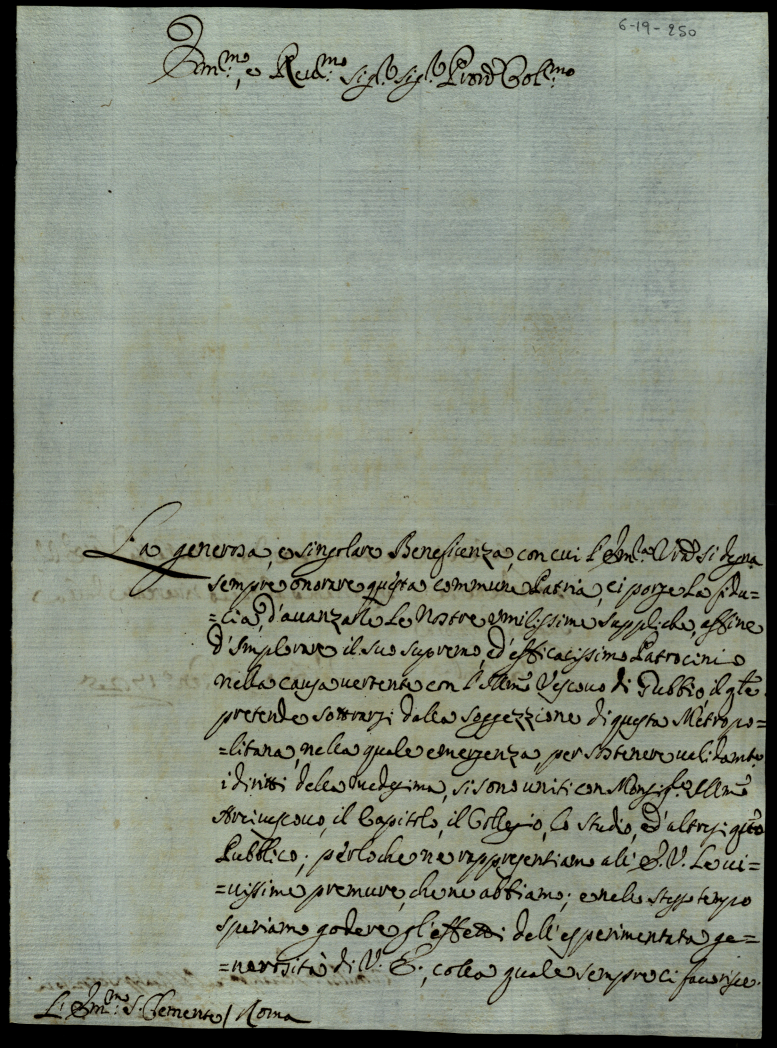 6-19-250
Em.mo, e Reu.mo Sig.r Sig.r Pron Col.mo
La generosa, e singolare Beneficenza, con cui l'Em.a V.ra si degna
sempre onorare questa commune Patria, ci porge la fidu=
=cia, d'auanzarle le nostre umilissime suppliche, affine
d'Implorare il suo supremo, ed' efficacissimo Patrocinio
nella causa uertente con l'Illmo Vescouo di Gubbio, il qle
pretende sottrarsi dalla soggezzione di questa Metropo=
=litana, nella quale emergenza per sostenere ualidamte
i diritti della medesima, si sono uniti con Monsig.r Illmo
Arciuescouo, il Capitolo, il Collegio, lo Studio, ed' altresi qto
Pubblico; perloche ne rappresentiamo all' E. V. le ui=
=uissime premure, che ne abbiamo; e nello stesso tempo
speriamo godere gl'effetti dell'esperimentata ge=
=nerosità di V. E., colla quale sempre ci fauorisce.
L' Em.mo S. Clemente / Roma